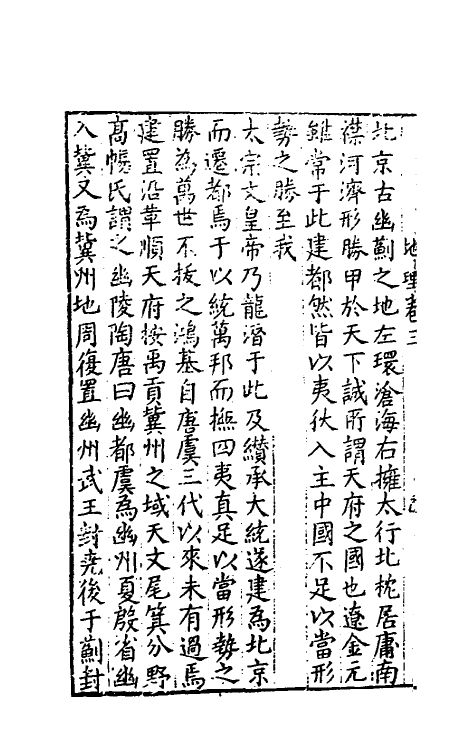 地理卷三
北京古幽薊之地左環滄海右擁太行北枕居庸南
襟河濟形勝甲於天下誠所謂天府之國也遼金元
雖常于此建都然皆以夷狄入主中國不足以當形
勢之勝至我
太宗文皇帝乃龍潛于此及纘承大統遂建為北京
而遷都焉于以統萬邦而撫四夷真足以當形勢之
勝為萬世不拔之鴻基自唐虞三代以來未有過焉
建置沿革順天府按禹貢冀州之域天文尾箕分野
髙陽氏謂之幽陵陶唐曰幽都虞為幽州夏殷省幽
入冀又為冀州地周復置幽州武王封堯後于薊封